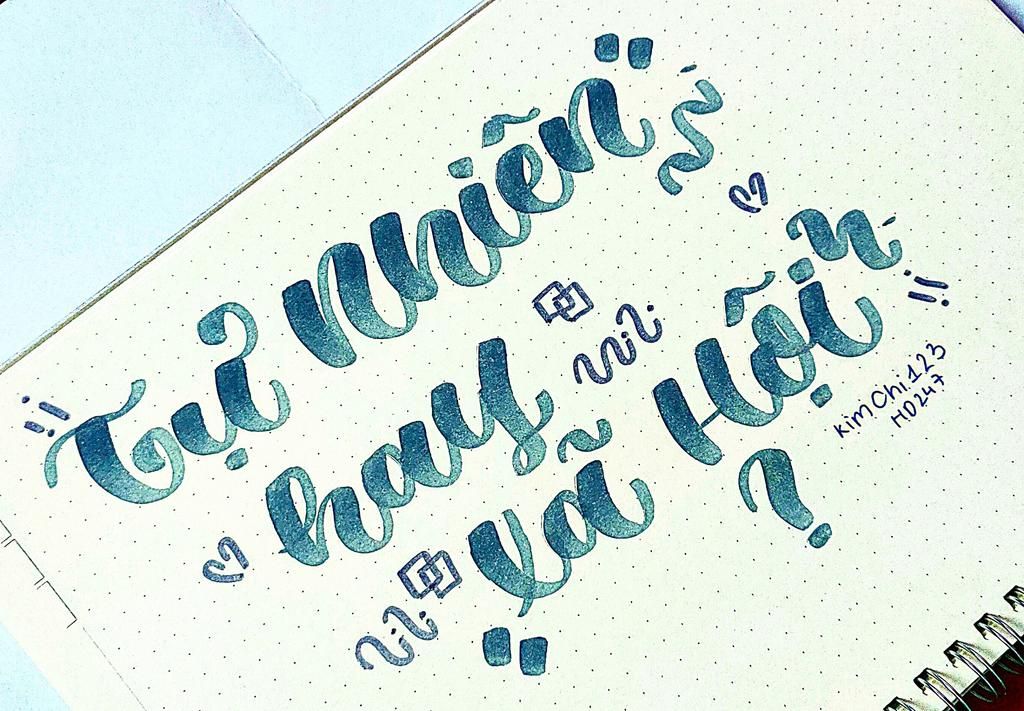 Tự Nhiên
hay
Xã Hội ?
KimChi.123
HD247